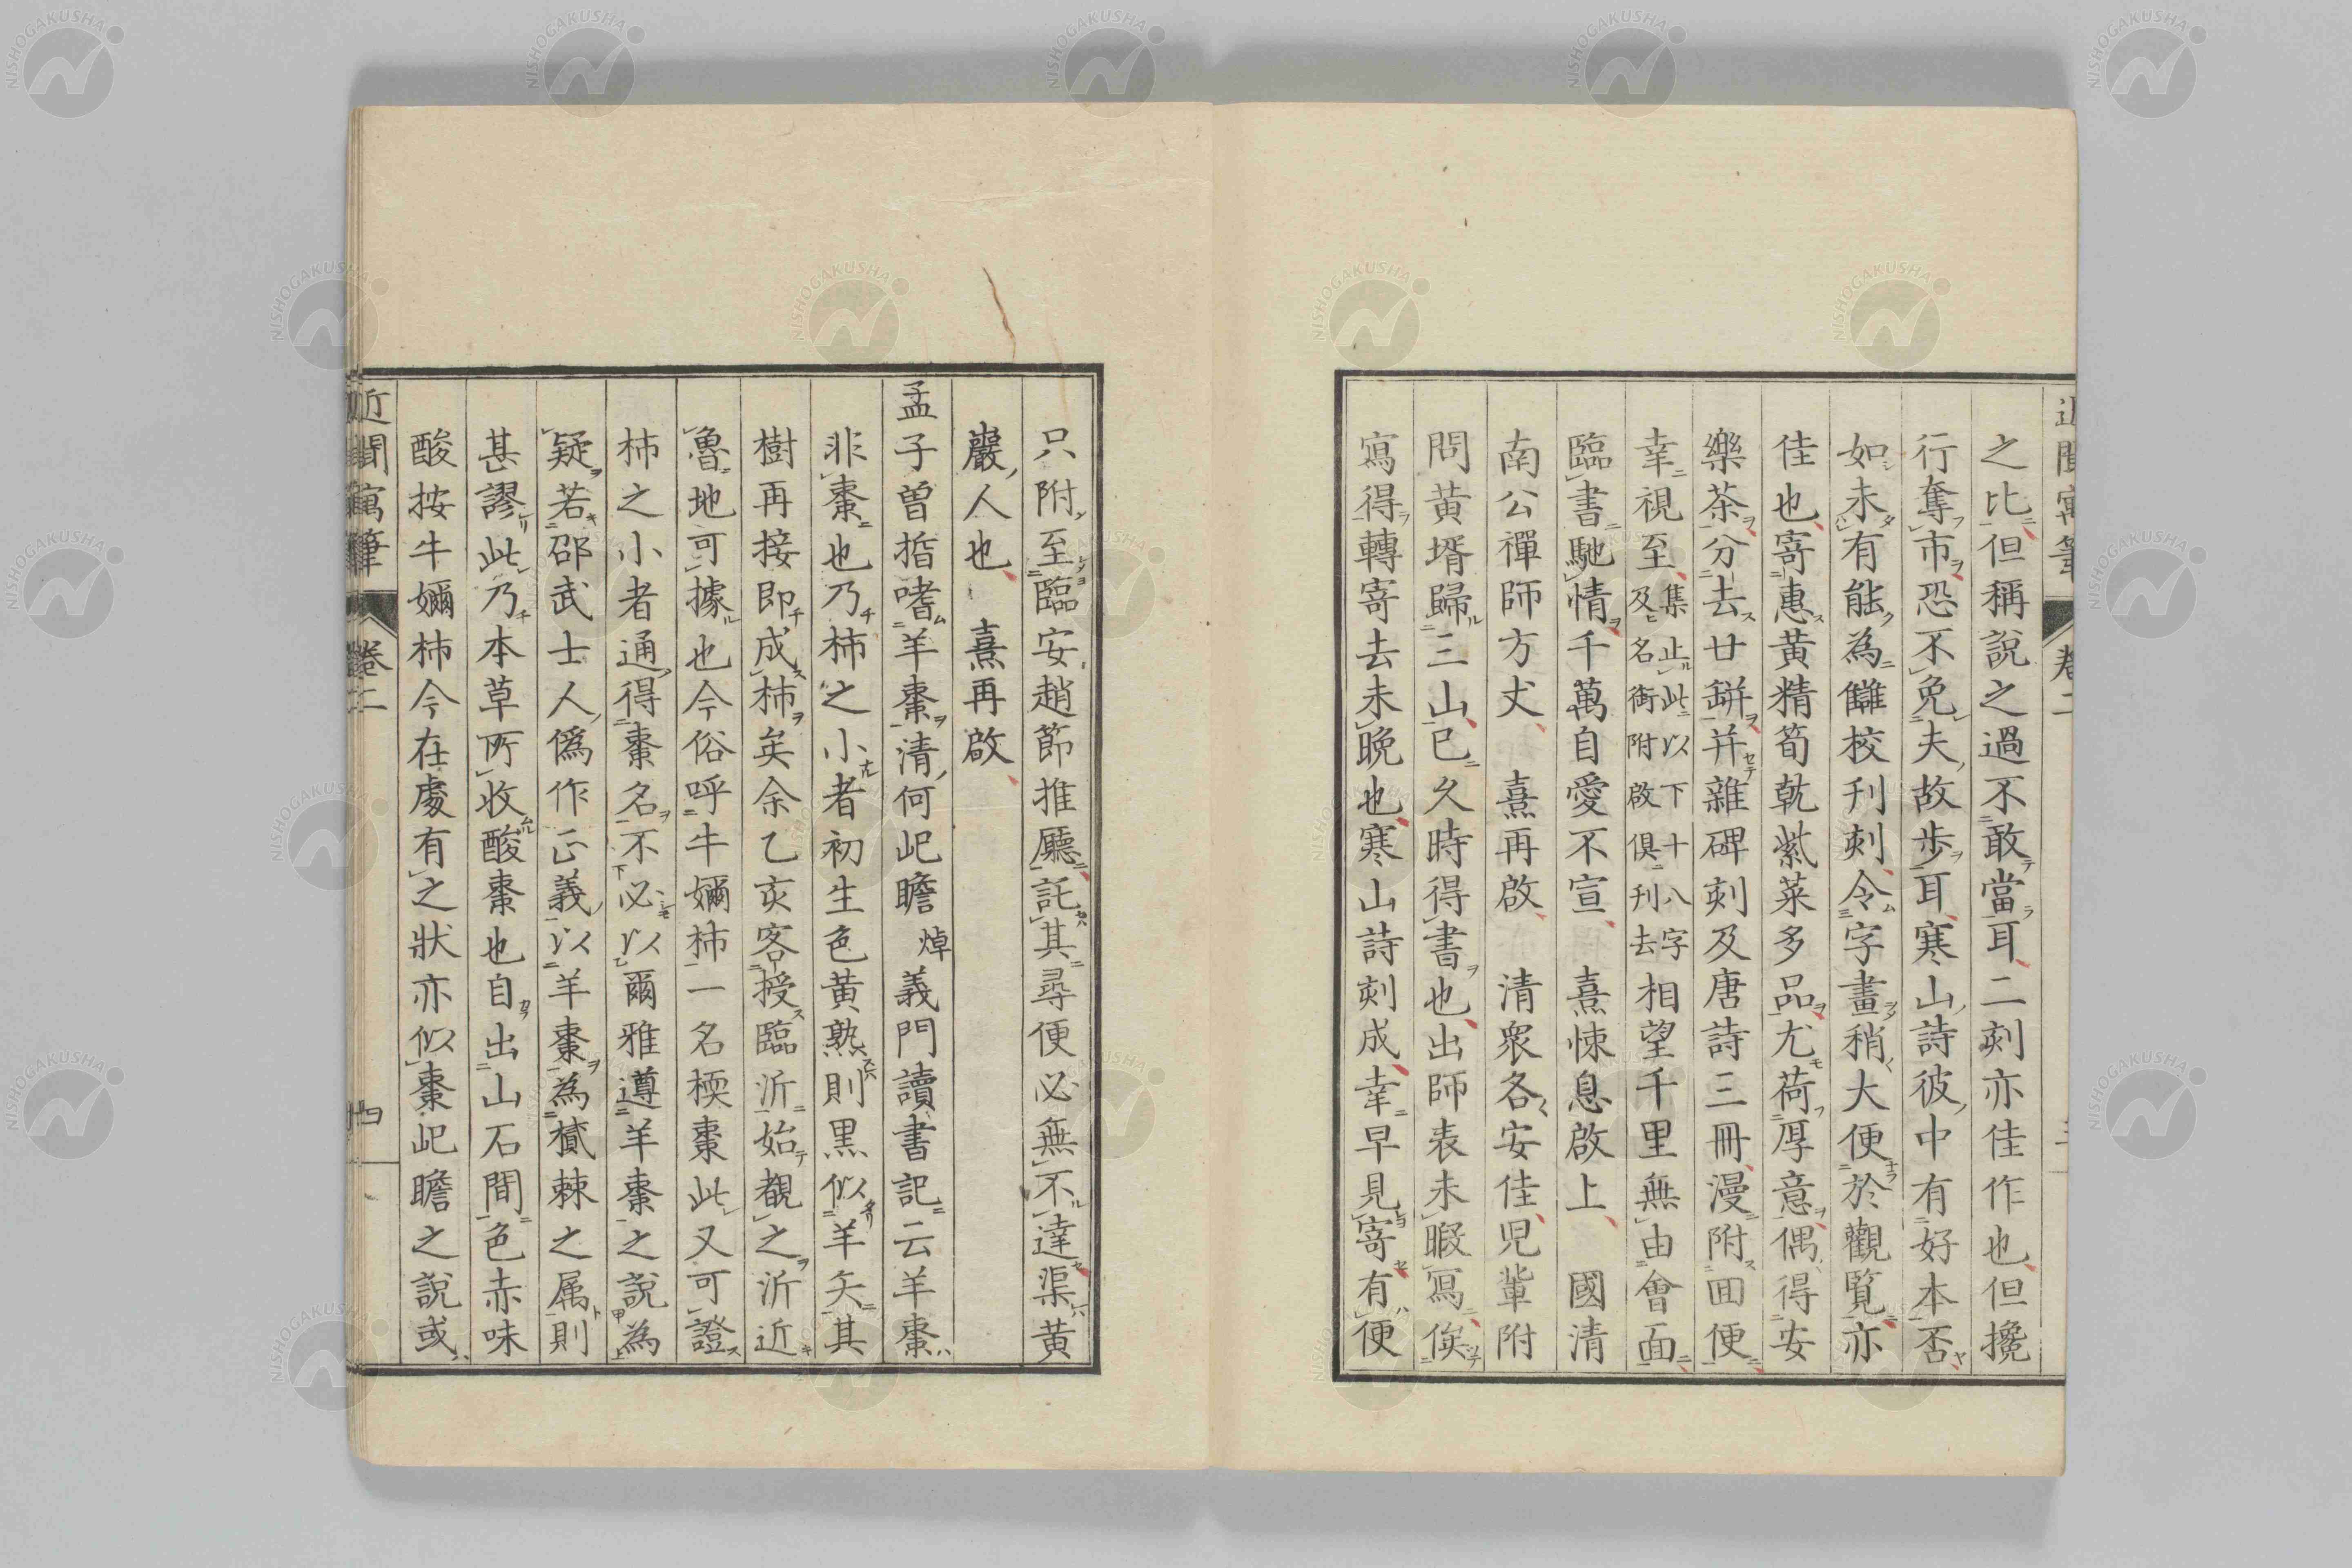 近聞寓筆 卷二 三
之比但稱說之過不敢當耳二刻亦佳作也但攙
行奪市恐不免夫故步耳寒山詩彼中有好本否
如未有能為讎校刊刻令字畫稍大便於觀覽亦
佳也寄惠黃精筍乾紫菜多品尤荷厚意偶得安
樂茶分去廿缾并雜碑刻及唐詩三冊漫附囬便
幸視至集止此以下十八字及名銜附啟俱刊去相望千里無由會面
臨書馳情千萬自愛不宣 熹悚息啟上 國清
南公禪師方丈 熹再啟 清衆各安佳児輩附
問黃壻歸三山已久時得書也出師表未暇寫俟
寫得轉寄去未晚也寒山詩刻成幸早見寄有便
只附至臨安趙節推廳託其尋便必無不達渠黃
巖人也 熹再啟
孟子曾晳嗜羊棗清何屺瞻焯義門讀書記云羊棗
非棗也乃柿之小者初生色黃熟則黒似羊矢其
樹再接即成柿矣余乙亥客授臨沂始覩之沂近
魯地可據也今俗呼牛嬭柿一名㮕棗此又可證
柿之小者通得棗名不必以爾雅遵羊棗之說為
疑若邵武士人偽作正義以羊棗為樲棘之属則
甚謬此乃本草所收酸棗也自出山石間色赤味
酸按牛嬭柿今在處有之狀亦似棗屺瞻之說或
近聞寓筆 卷二 四
NISHOGAKUSHA